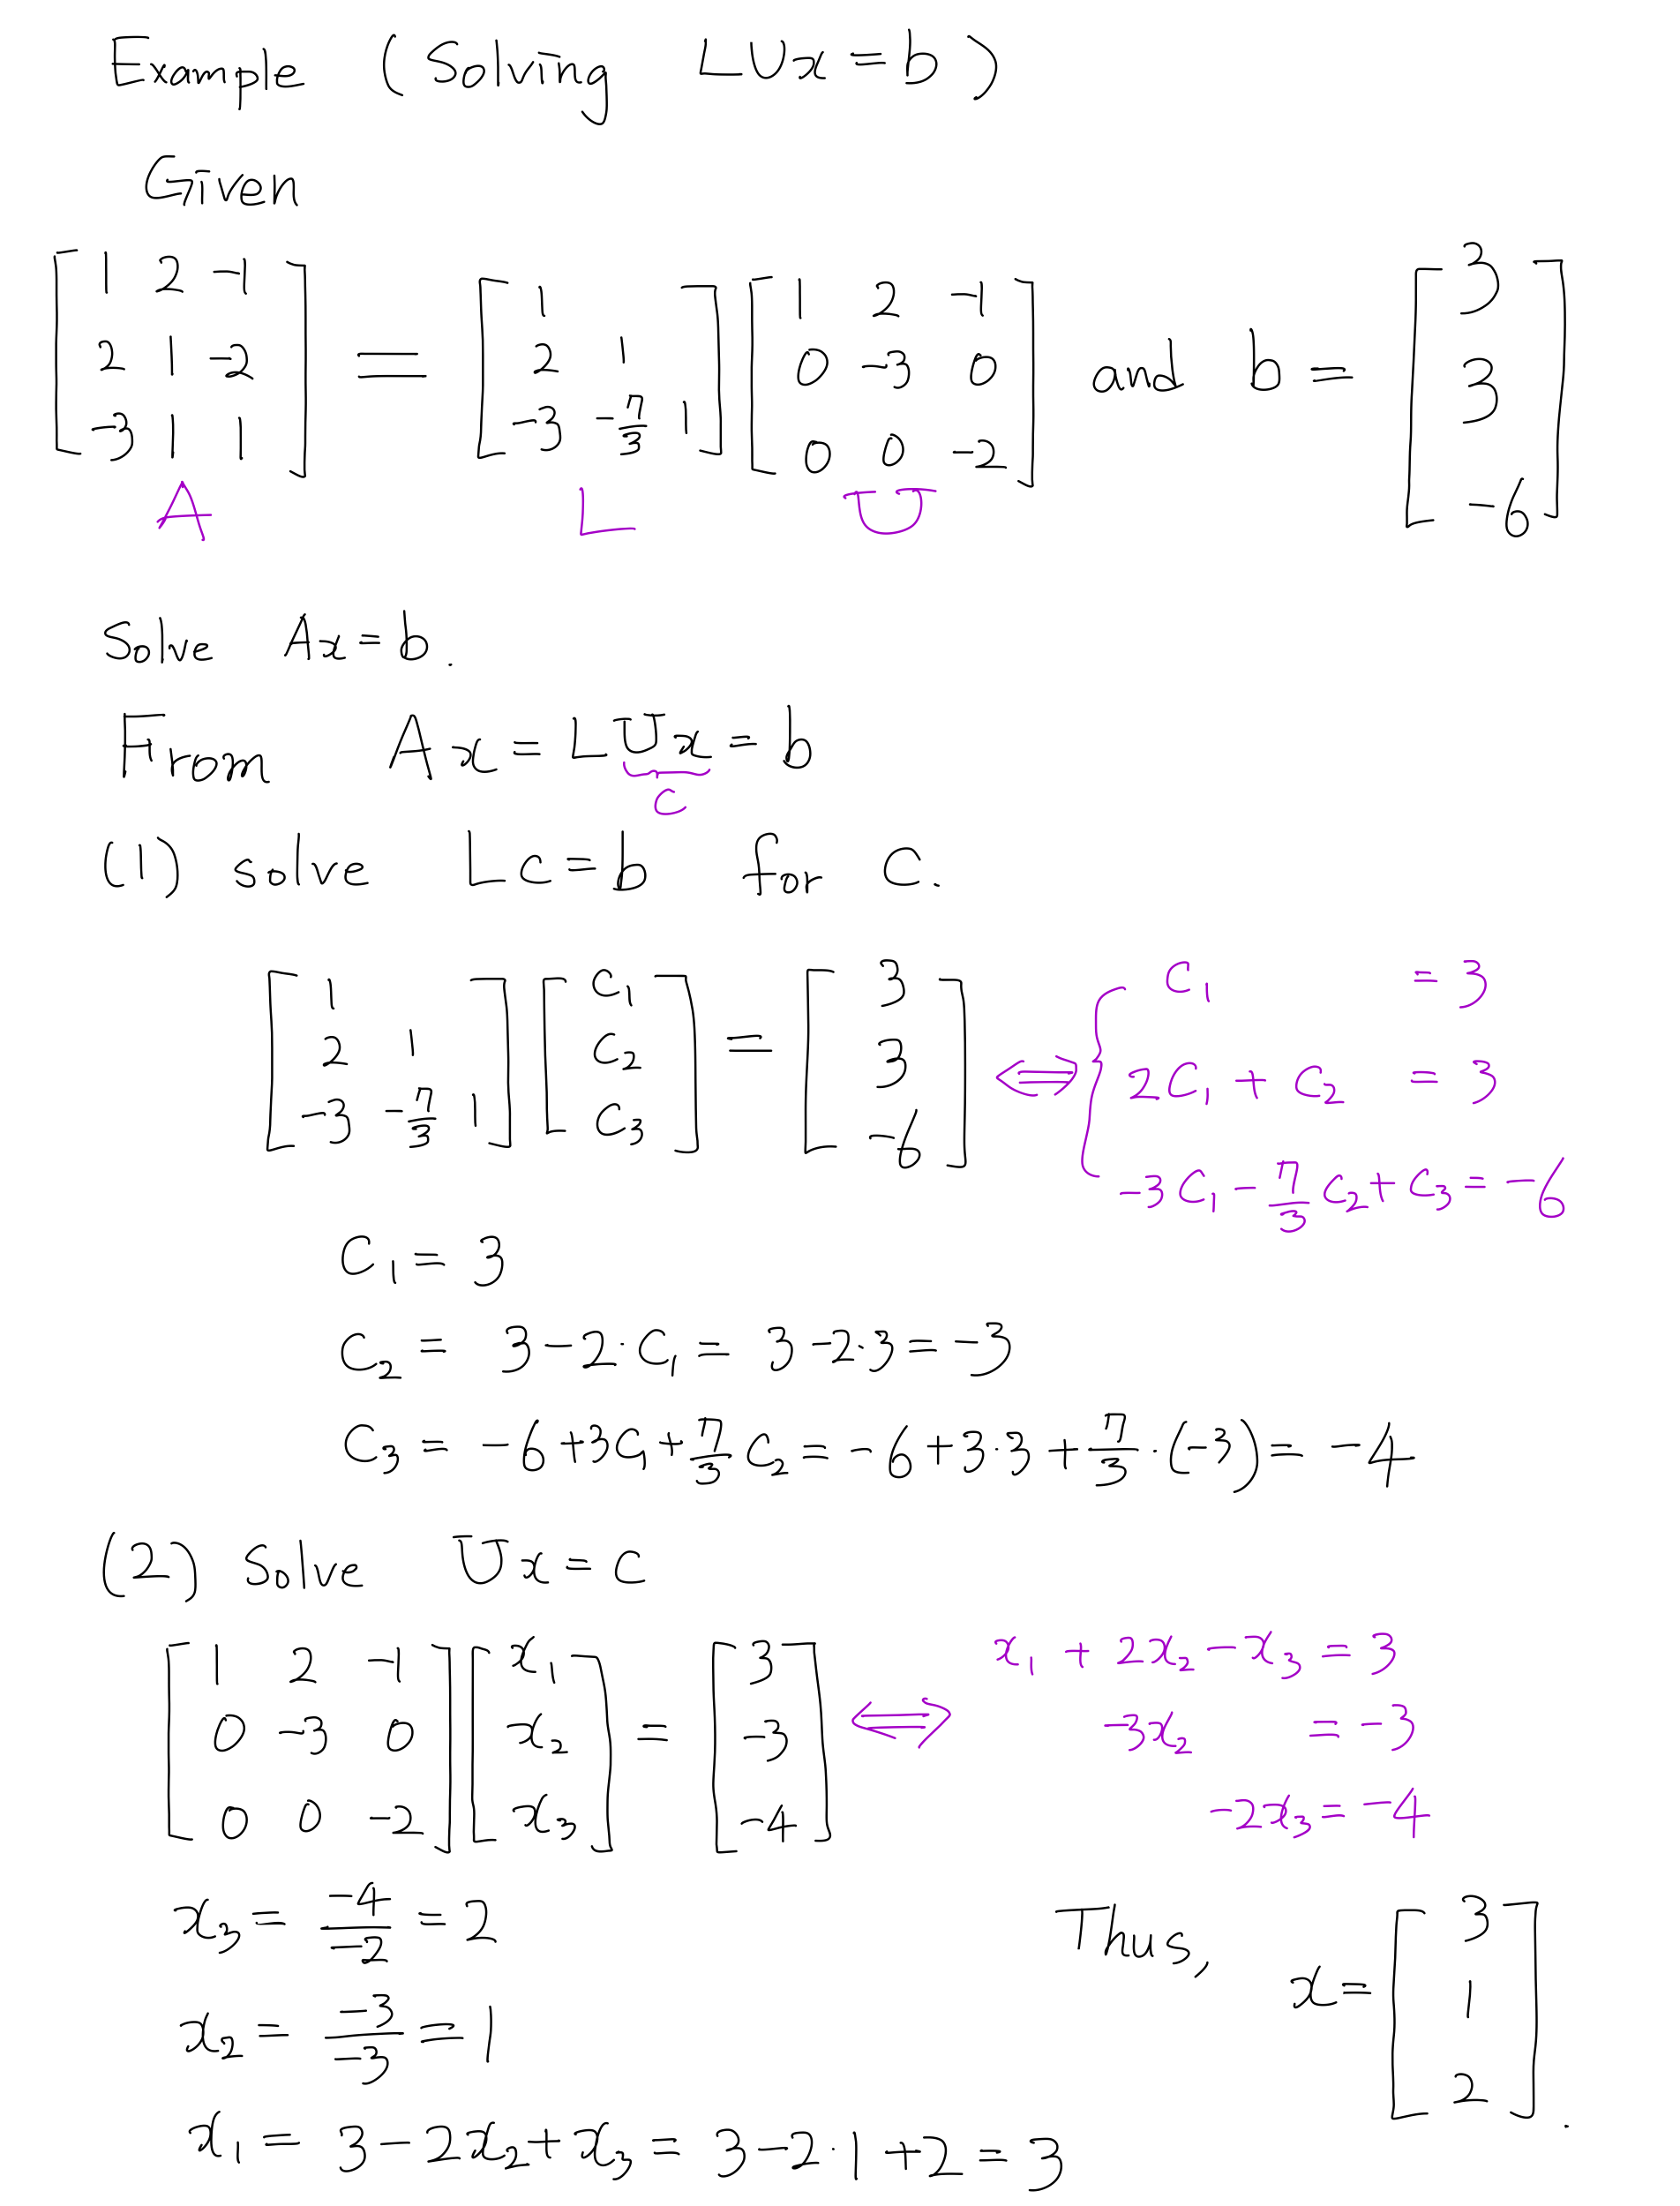 Example (Solving LUx = b)
Given
[1 2 -1; 2 1 -2; -3 1 1] = [1; 2 1; -3 -7/3 1] [1 2 -1; 0 -3 0; 0 0 -2] and b = [3; 3; -6]
A L U
Solve Ax = b.
From Ax = LUx = b
c
(1) solve Lc = b for c.
[1; 2 1; -3 -7/3 1] [c₁; c₂; c₃] = [3; 3; -6] ⟺ { c₁ = 3
2c₁ + c₂ = 3
-3c₁ - 7/3 c₂ + c₃ = -6
c₁ = 3
c₂ = 3 - 2·c₁ = 3 - 2·3 = -3
c₃ = -6 + 3c₁ + 7/3 c₂ = -6 + 3·3 + 7/3·(-3) = -4
(2) Solve Ux = c
[1 2 -1; 0 -3 0; 0 0 -2] [x₁; x₂; x₃] = [3; -3; -4] ⟺ x₁ + 2x₂ - x₃ = 3
-3x₂ = -3
-2x₃ = -4
x₃ = -4/-2 = 2
x₂ = -3/-3 = 1
x₁ = 3 - 2x₂ + x₃ = 3 - 2·1 + 2 = 3
Thus, x = [3; 1; 2].